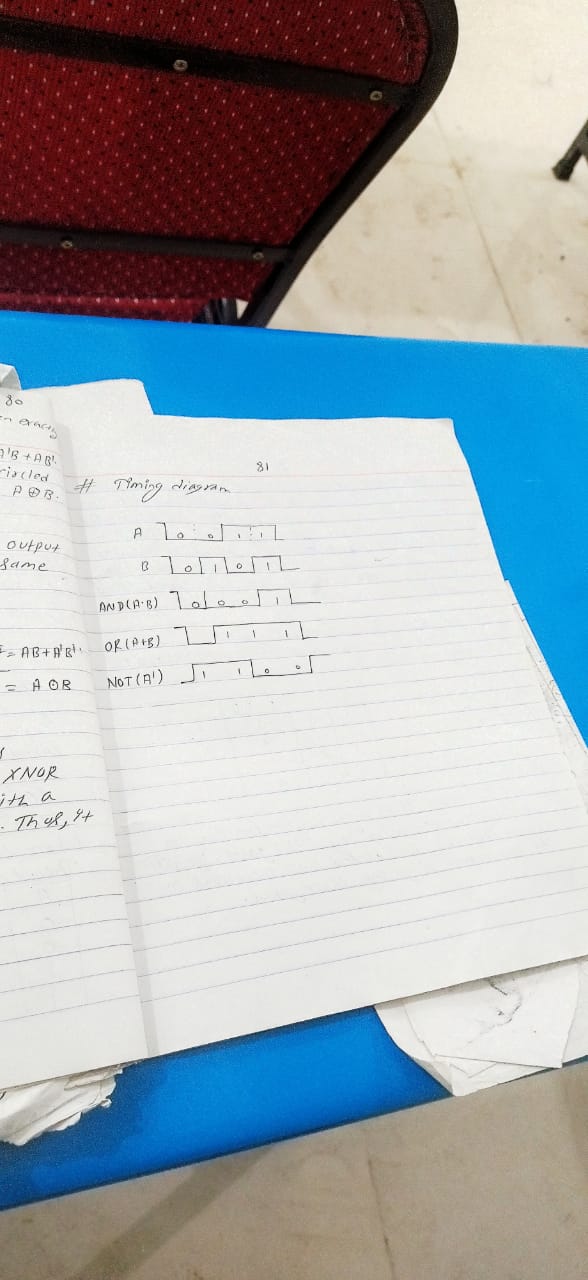 80
A'B + AB'.
circled
A ⊕ B.
output
same
= AB + A'B'.
= A ⊙ B
XNOR
ith a
. Thus, it
81
# Timing diagram
A 0 0 1 1
B 0 1 0 1
AND (A·B) 0 0 0 1
OR (A+B) 1 1 1
NOT (A') 1 1 0 0